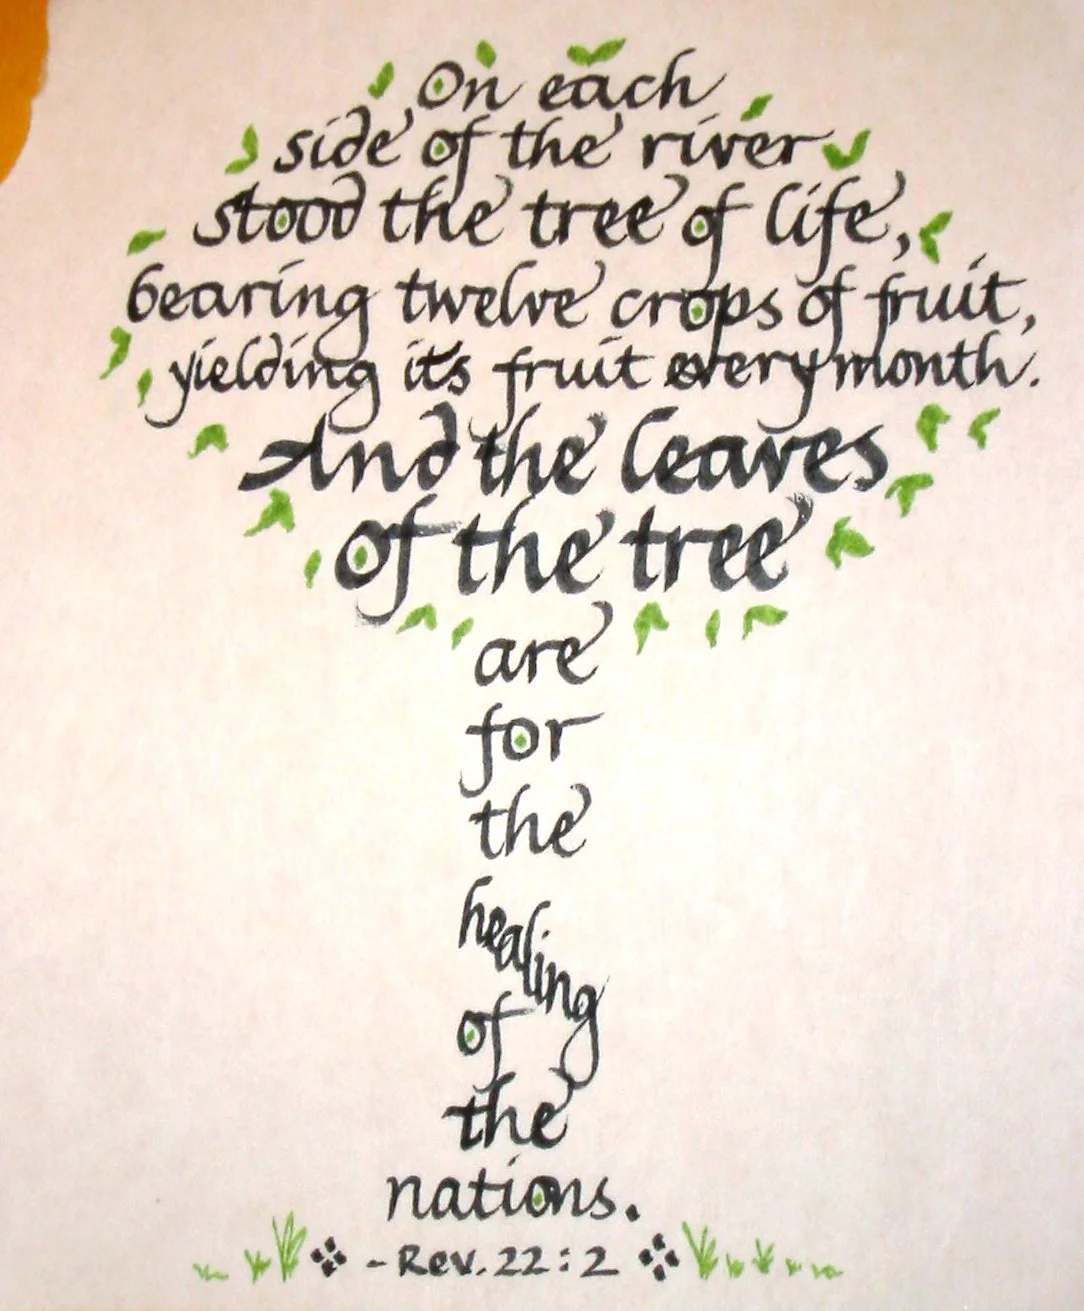 On each
side of the river
stood the tree of life,
bearing twelve crops of fruit,
yielding its fruit every month.
And the leaves
of the tree
are
for
the
healing
of
the
nations.
-Rev. 22:2